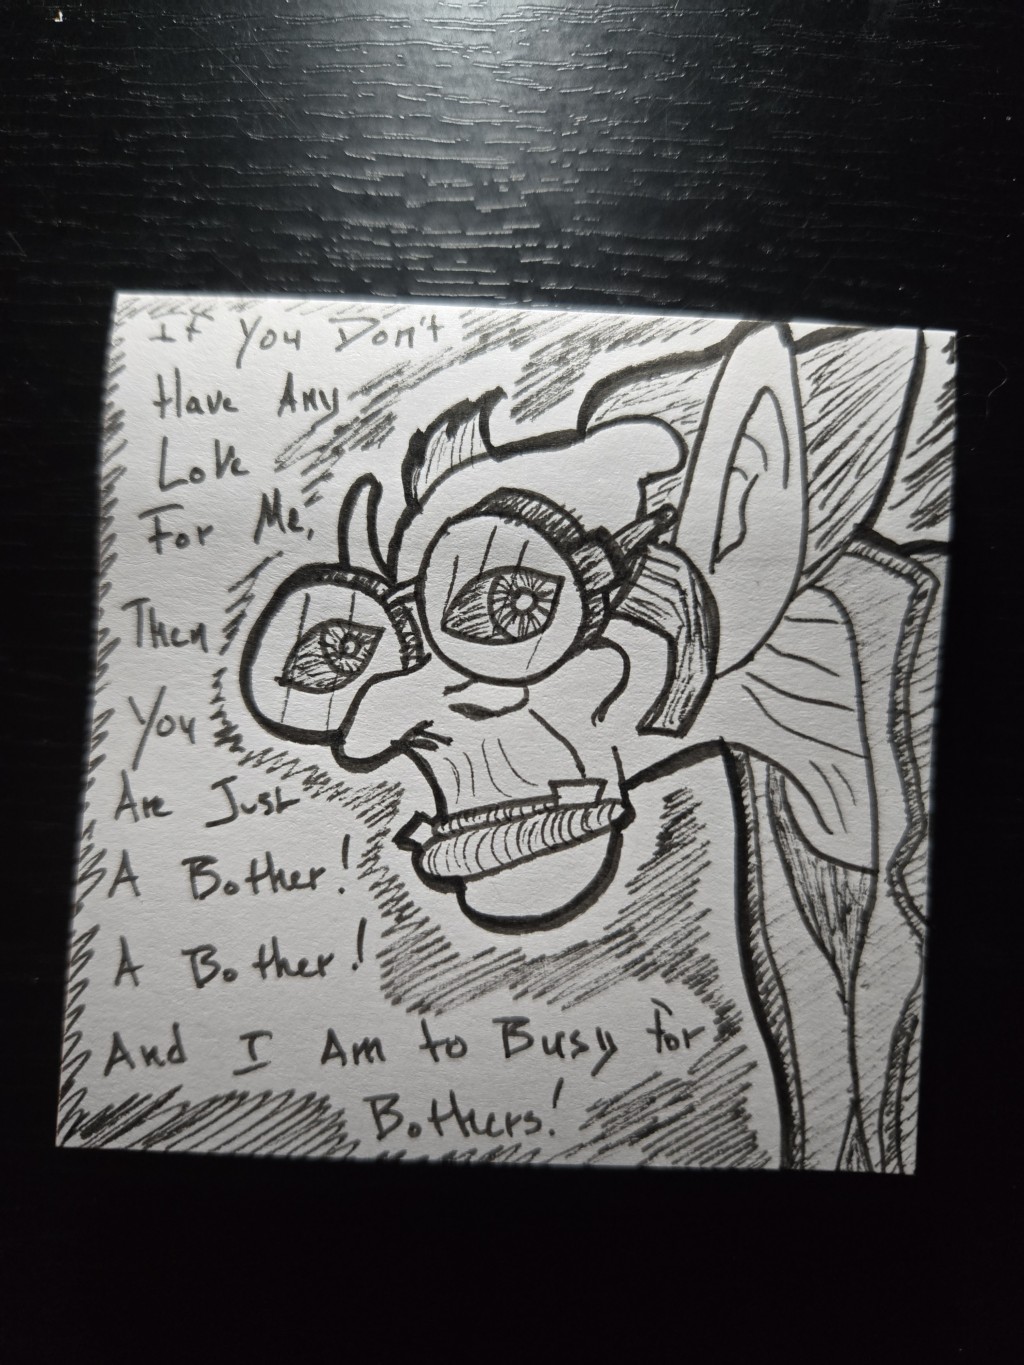 If You Don't
Have Any
Love
For Me,
Then
You
Are Just
A Bother!
A Bother!
And I Am to Busy for
Bothers!